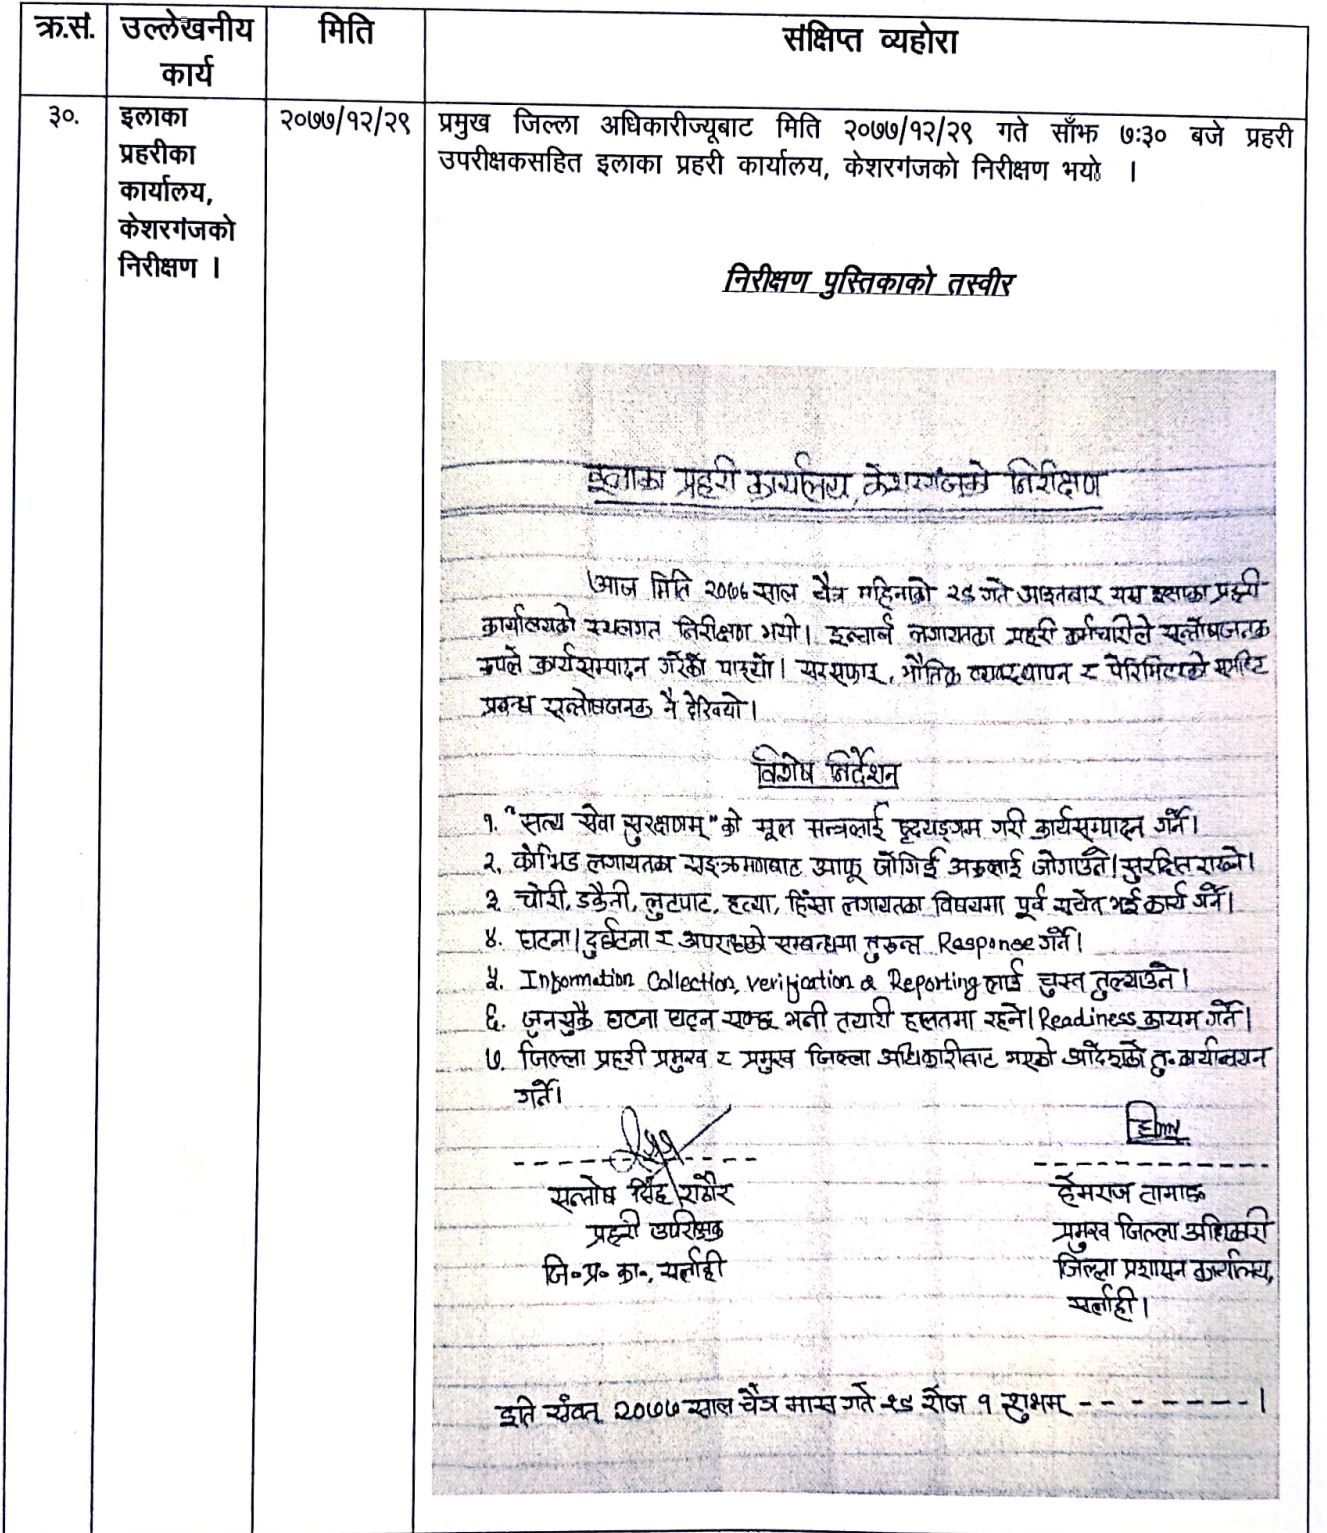 क्र.सं. उल्लेखनीय कार्य मिति संक्षिप्त व्यहोरा
३०. इलाका प्रहरीका कार्यालय, केशरगंजको निरीक्षण । २०७७/१२/२९ प्रमुख जिल्ला अधिकारीज्यूबाट मिति २०७७/१२/२९ गते साँझ ७:३० बजे प्रहरी
उपरीक्षकसहित इलाका प्रहरी कार्यालय, केशरगंजको निरीक्षण भयो ।
निरीक्षण पुस्तिकाको तस्वीर
इलाका प्रहरी कार्यालय, केशरगंजको निरीक्षण
आज मिति २०७७ साल चैत्र महिनाको २९ गते आइतबार यस इलाका प्रहरी
कार्यालयको स्थलगत निरीक्षण भयो। इन्चार्ज लगायतका प्रहरी कर्मचारीले सन्तोषजनक
रुपले कार्यसम्पादन गरेको पाइयो। सरसफाइ, भौतिक व्यवस्थापन र पेरिमिटरको
प्रबन्ध सन्तोषजनक नै देखियो।
विशेष निर्देशन
१. "सत्य सेवा सुरक्षणम्" को मूल मन्त्रलाई हृदयङ्गम गरी कार्यसम्पादन गर्ने।
२. कोभिड लगायतका सङ्क्रमणबाट आफू जोगिई अरुलाई जोगाउने। सुरक्षित राख्ने।
३. चोरी, डकैती, लुटपाट, हत्या, हिंसा लगायतका विषयमा पूर्व सचेत भई कार्य गर्ने।
४. घटना। दुर्घटना र अपराधको सम्बन्धमा तुरुन्त Response गर्ने।
५. Information Collection, verification & Reporting लाई चुस्त तुल्याउने।
६. जुनसुकै घटना घट्न सक्छ भनी तयारी हालतमा रहने। Readiness कायम गर्ने।
७. जिल्ला प्रहरी प्रमुख र प्रमुख जिल्ला अधिकारीबाट भएको आदेशको तु॰ कार्यान्वयन
गर्ने।
सन्तोष सिंह राठौर
प्रहरी उपरीक्षक
जि॰प्र॰ का॰, सर्लाही
हेमराज तामाङ
प्रमुख जिल्ला अधिकारी
जिल्ला प्रशासन कार्यालय,
सर्लाही।
इति संवत् २०७७ साल चैत्र मास गते २९ रोज १ शुभम् - - - - - - - - ।